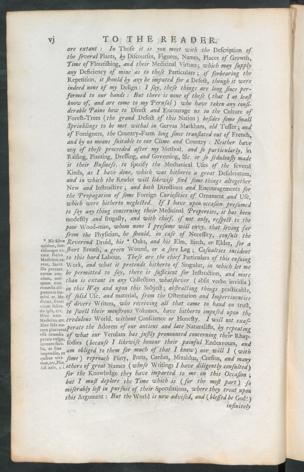 vj TO THE READER.
are extant: In These it is you meet with the Description of
the several Plants, by Discourses, Figures, Names, Places of Growth,
Time of Flourishing, and their Medicinal Virtues; which may supply
any Deficiency of mine as to those Particulars; if forbearing the
Repetition, it should by any be imputed for a Defect, though it were
indeed none of my Design: I say, these things are long since per-
formed to our hands: But there is none of these (that I at least
know of, and are come to my Perusal) who have taken any consi-
derable Pains how to Direct and Encourage us in the Culture of
Forest-Trees (the grand Defect of this Nation) besides some small
Sprinklings to be met withal in Gervas Markham, old Tusser; and
of Foreigners, the Country-Farm long since translated out of French,
and by no means suitable to our Clime and Country: Neither have
any of these proceeded after my Method, and so particularly, in
Raising, Planting, Dressing, and Governing, &c. or so sedulously made
it their Business, to specify the Mechanical Uses of the several
Kinds, as I have done, which was hitherto a great Desideratum,
and in which the Reader will likewise find some things altogether
New and Instructive; and both Directions and Encouragements for
the Propagation of some Foreign Curiosities of Ornament and Use,
which were hitherto neglected. If I have upon occasion presumed
to say any thing concerning their Medicinal Properties, it has been
modestly and frugally, and with chief, if not only, respect to the
poor Wood-man, whom none I presume will envy, that living far
from the Physician, he should, in case of Necessity, consult the
Reverend Druid, his * Oaks, and his Elm, Birch, or Elder, for a
short Breath, a green Wound, or a sore Leg; Casualties incident
to this hard Labour. These are the chief Particulars of this ensuing
Work, and what it pretends hitherto of Singular, in which let me
be permitted to say, there is sufficient for Instruction, and more
than is extant in any Collection whatsoever (absit verbo invidia)
in this Way and upon this Subject; abstracting things practicable,
of solid Use, and material, from the Ostentation and Impertinencies
of divers Writers, who receiving all that came to hand on trust,
to swell their monstrous Volumes, have hitherto imposed upon the
credulous World, without Conscience or Honesty. I will not exas-
perate the Adorers of our ancient and late Naturalists, by repeating
of what our Verulam has justly pronounced concerning their Rhap-
sodies (because I likewise honour their painful Endeavours, and
am obliged to them for much of that I know) nor will I (with
some) reproach Pliny, Porta, Cardan, Mizaldus, Cursius, and many
others of great Names (whose Writings I have diligently consulted)
for the Knowledge they have imparted to me on this Occasion;
but I must deplore the Time which is (for the most part) so
miserably lost in pursuit of their Speculations, where they treat upon
this Argument: But the World is now advised, and (blessed be God!)
infinitely